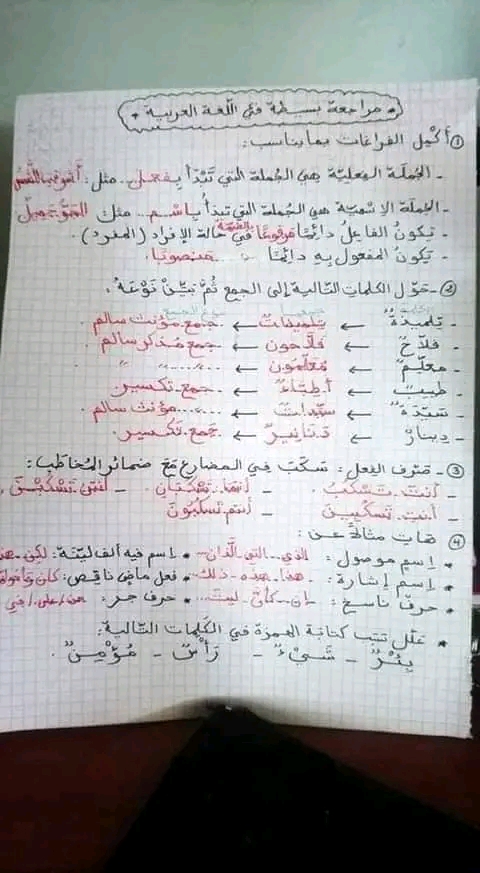 * مراجعة بسيطة في اللغة العربية *
① أكمل الفراغات بما يناسب:
- الجملة الفعلية هي الجملة التي تبدأ بفعل.. مثل:
- الجملة الاسمية هي الجملة التي تبدأ باسم... مثل: الجو جميل
- يكون الفاعل دائما مرفوعا بالضمة في حالة الإفراد (المفرد).
- يكون المفعول به دائما ..... منصوبا.
② - حوّل الكلمات التالية إلى الجمع ثم بيّن نوعه:
- تلميذةٌ ← تلميذاتٌ ← جمع مؤنث سالم.
- فلاحٌ ← فلاحون ← جمع مذكر سالم.
- معلّمٌ ← معلمون ← " "
- طبيبٌ ← أطباءٌ ← جمع تكسير
- سيّدةٌ ← سيداتٌ ← ...... مؤنث سالم
- دينارٌ ← دنانيرٌ ← جمع تكسير.
③ - صرّف الفعل: سكب في المضارع مع ضمائر المخاطب:
- أنتَ تسكبُ - أنتما تسكبان - أنتن تسكبن
- أنتِ تسكبين - أنتم تسكبون
④ هات مثالا عن:
* اسم موصول: الذي.. التي اللذان.. * اسم فيه ألف لينة: لكن هذا
* اسم إشارة: هذا هذه ذلك * فعل ماض ناقص: كان وأخواتها
* حرف ناسخ: إن كأن ليت... * حرف جر: من/على/في
* علل سبب كتابة الهمزة في الكلمات التالية:
بئرٌ - شيءٌ - رأسٌ - مؤمنٌ.